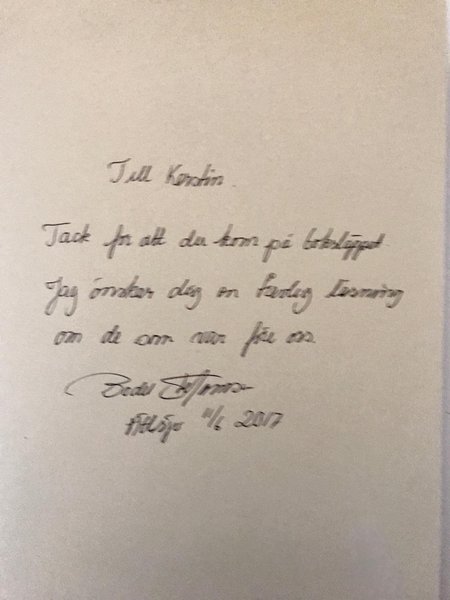 Till Kerstin.
Tack för att du kom på boksläppet
Jag önskar dig en läsning
om de som var före oss.
Bodil
11/6 2017